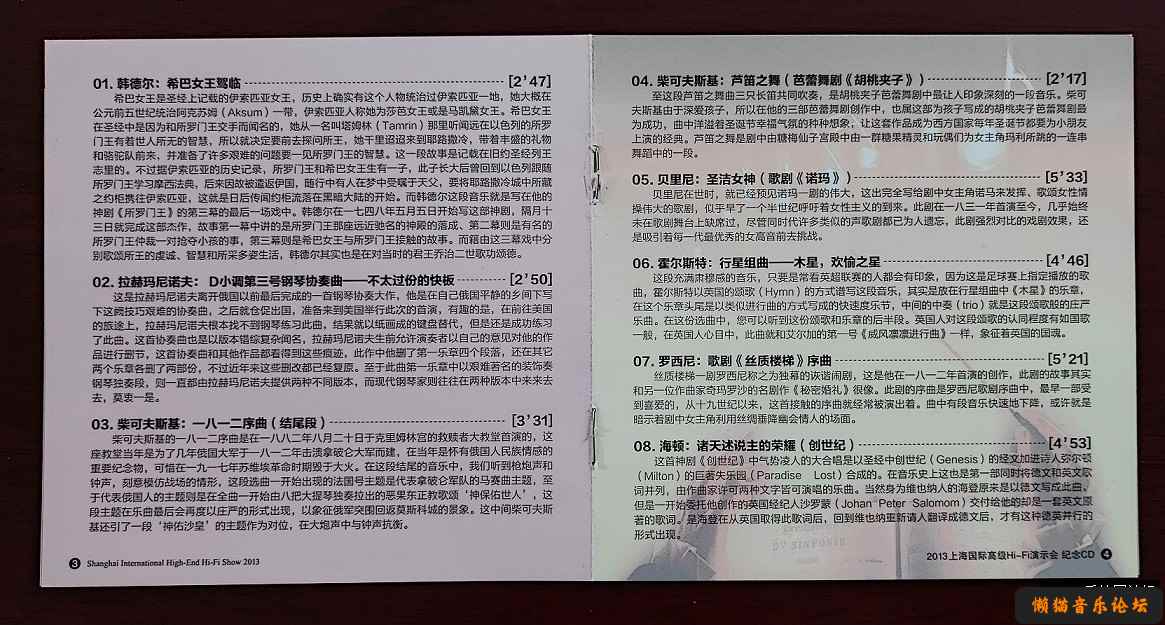 01. 韩德尔：希巴女王驾临 [2'47]
希巴女王是圣经上记载的伊索匹亚女王，历史上确实有这个人物统治过伊索匹亚一地，她大概在
公元前五世纪统治阿克苏姆（Aksum）一带，伊索匹亚人称她为莎芭女王或是马凯黛女王。希巴女王
在圣经中是因为和所罗门王交手而闻名的，她从一名叫塔姆林（Tamrin）那里听闻远在以色列的所罗
门王有着世人所无的智慧，所以就决定要前去探问所王，她千里迢迢来到耶路撒冷，带着丰盛的礼物
和骆驼队前来，并准备了许多艰难的问题要一见所罗门王的智慧。这一段故事是记载在旧约圣经列王
志里的。不过据伊索匹亚的历史记录，所罗门王和希巴女王生有一子，此子长大后曾回到以色列跟随
所罗门王学习摩西法典，后来因故被遣返伊国，随行中有人在梦中受嘱于天父，要将耶路撒冷城中所藏
之约柜携往伊索匹亚，这就是日后传闻约柜流落在黑暗大陆的开始。而韩德尔这段音乐就是写在他的
神剧《所罗门王》的第三幕的最后一场戏中。韩德尔在一七四八年五月五日开始写这部神剧，隔月十
三日就完成这部杰作，故事第一幕中讲的是所罗门王那座远近驰名的神殿的落成、第二幕则是有名的
所罗门王仲裁一对抢夺小孩的事，第三幕则是希巴女王与所罗门王接触的故事。而籍由这三幕戏中分
别歌颂所王的虔诚、智慧和所采多姿生活，韩德尔其实也是在对当时的君王乔治二世歌功颂德。
02. 拉赫玛尼诺夫： D小调第三号钢琴协奏曲——不太过份的快板 [2'50]
这是拉赫玛尼诺夫离开俄国以前最后完成的一首钢琴协奏大作，他是在自己俄国平静的乡间下写
下这阙技巧艰难的协奏曲，之后就仓促出国，准备来到美国举行此次的首演，有趣的是，在前往美国
的旅途上，拉赫玛尼诺夫根本找不到钢琴练习此曲，结果就以纸画成的键盘替代，但是还是成功练习
了此曲。这首协奏曲也是以版本错综复杂闻名，拉赫玛尼诺夫生前允许演奏者以自己的意见对他的作
品进行删节，这首协奏曲和其他作品都看得到这些痕迹，此作中他删了第一乐章四个段落，还在其它
两个乐章各删了两部份，不过近年来这些删改都已经复原。至于此曲第一乐章中以艰难著名的装饰奏
钢琴独奏段，则一直都由拉赫玛尼诺夫提供两种不同版本，而现代钢琴家则往往在两种版本中来来去
去，莫衷一是。
03. 柴可夫斯基：一八一二序曲（结尾段） [3'31]
柴可夫斯基的一八一二序曲是在一八八二年八月二十日于克里姆林宫的救赎者大教堂首演的，这
座教堂当年是为了几年俄国大军于一八一二年击溃拿破仑大军而建，在当年是怀有俄国人民族情感的
重要纪念物，可惜在一九一七年苏维埃革命时期毁于大火。在这段结尾的音乐中，我们听到枪炮声和
钟声，刻意模仿战场的情形，这段选曲一开始出现的法国号主题是代表拿破仑军队的马赛曲主题，至
于代表俄国人的主题则是在全曲一开始由八把大提琴独奏拉出的恶果东正教歌颂‘神保佑世人’，这
段主题在乐曲最后会再度以庄严的形式出现，以象征俄军突围回返莫斯科城的景象。这中间柴可夫斯
基还引了一段‘神佑沙皇’的主题作为对位，在大炮声中与钟声抗衡。
3 Shanghai International High-End Hi-Fi Show 2013
04. 柴可夫斯基：芦笛之舞（芭蕾舞剧《胡桃夹子》） [2'17]
至这段芦笛之舞曲三只长笛共同吹奏，是胡桃夹子芭蕾舞剧中最让人印象深刻的一段音乐。柴可
夫斯基由于深爱孩子，所以在他的三部芭蕾舞剧创作中，也属这部为孩子写成的胡桃夹子芭蕾舞剧最
为成功，曲中洋溢着圣诞节幸福气氛的种种想象；让这套作品成为西方国家每年圣诞节都要为小朋友
上演的经典。芦笛之舞是剧中由糖梅仙子宫殿中由一群糖果精灵和玩偶们为女主角玛利所跳的一连串
舞蹈中的一段。
05. 贝里尼：圣洁女神（歌剧《诺玛》） [5'33]
贝里尼在世时，就已经预见诺玛一剧的伟大，这出完全写给剧中女主角诺马来发挥、歌颂女性情
操伟大的歌剧，似乎早了一个半世纪呼吁着女性主义的到来。此剧在一八三一年首演至今，几乎始终
未在歌剧舞台上缺席过，尽管同时代许多类似的声歌剧都已为人遗忘，此剧强烈对比的戏剧效果，还
是吸引着每一代最优秀的女高音前去挑战。
06. 霍尔斯特：行星组曲——木星，欢愉之星 [4'46]
这段充满肃穆感的音乐，只要是常看英超联赛的人都会有印象，因为这是足球赛上指定播放的歌
曲，霍尔斯特以英国的颂歌（Hymn）的方式谱写这段音乐，其实是放在行星组曲中《木星》的乐章，
在这个乐章头尾是以类似进行曲的方式写成的快速度乐节，中间的中奏（trio）就是这段颂歌般的庄严
乐曲。在这份选曲中，您可以听到这份颂歌和乐章的后半段。英国人对这段颂歌的认同程度有如国歌
一般，在英国人心目中，此曲就和艾尔加的第一号《威风凛凛进行曲》一样，象征着英国的国魂。
07. 罗西尼：歌剧《丝质楼梯》序曲 [5'21]
丝质楼梯一剧罗西尼称之为独幕的诙谐闹剧，这是他在一八一二年首演的创作，此剧的故事其实
和另一位作曲家奇玛罗沙的名剧作《秘密婚礼》很像。此剧的序曲是罗西尼歌剧序曲中，最早一部受
到喜爱的，从十九世纪以来，这首接触的序曲就经常被演出着。曲中有段音乐快速地下降，或许就是
暗示着剧中女主角利用丝绸垂降幽会情人的场面。
08. 海顿：诸天述说主的荣耀（创世纪） [4'53]
这首神剧《创世纪》中气势凌人的大合唱是以圣经中创世纪（Genesis）的经文加进诗人弥尔顿
（Milton）的巨著失乐园（Paradise Lost）合成的。在音乐史上这也是第一部同时将德文和英文歌
词并列，由作曲家许可两种文字皆可演唱的乐曲。当然身为维也纳人的海登原来是以德文写成此曲，
但是一开始委托他创作的英国经纪人沙罗蒙（Johan Peter Salomom）交付给他的却是一套英文原
著的歌词。是海登在从英国取得此歌词后，回到维也纳重新请人翻译成德文后，才有这种德英并行的
形式出现。
2013上海国际高级Hi-Fi演示会 纪念CD 4
懒猫音乐论坛